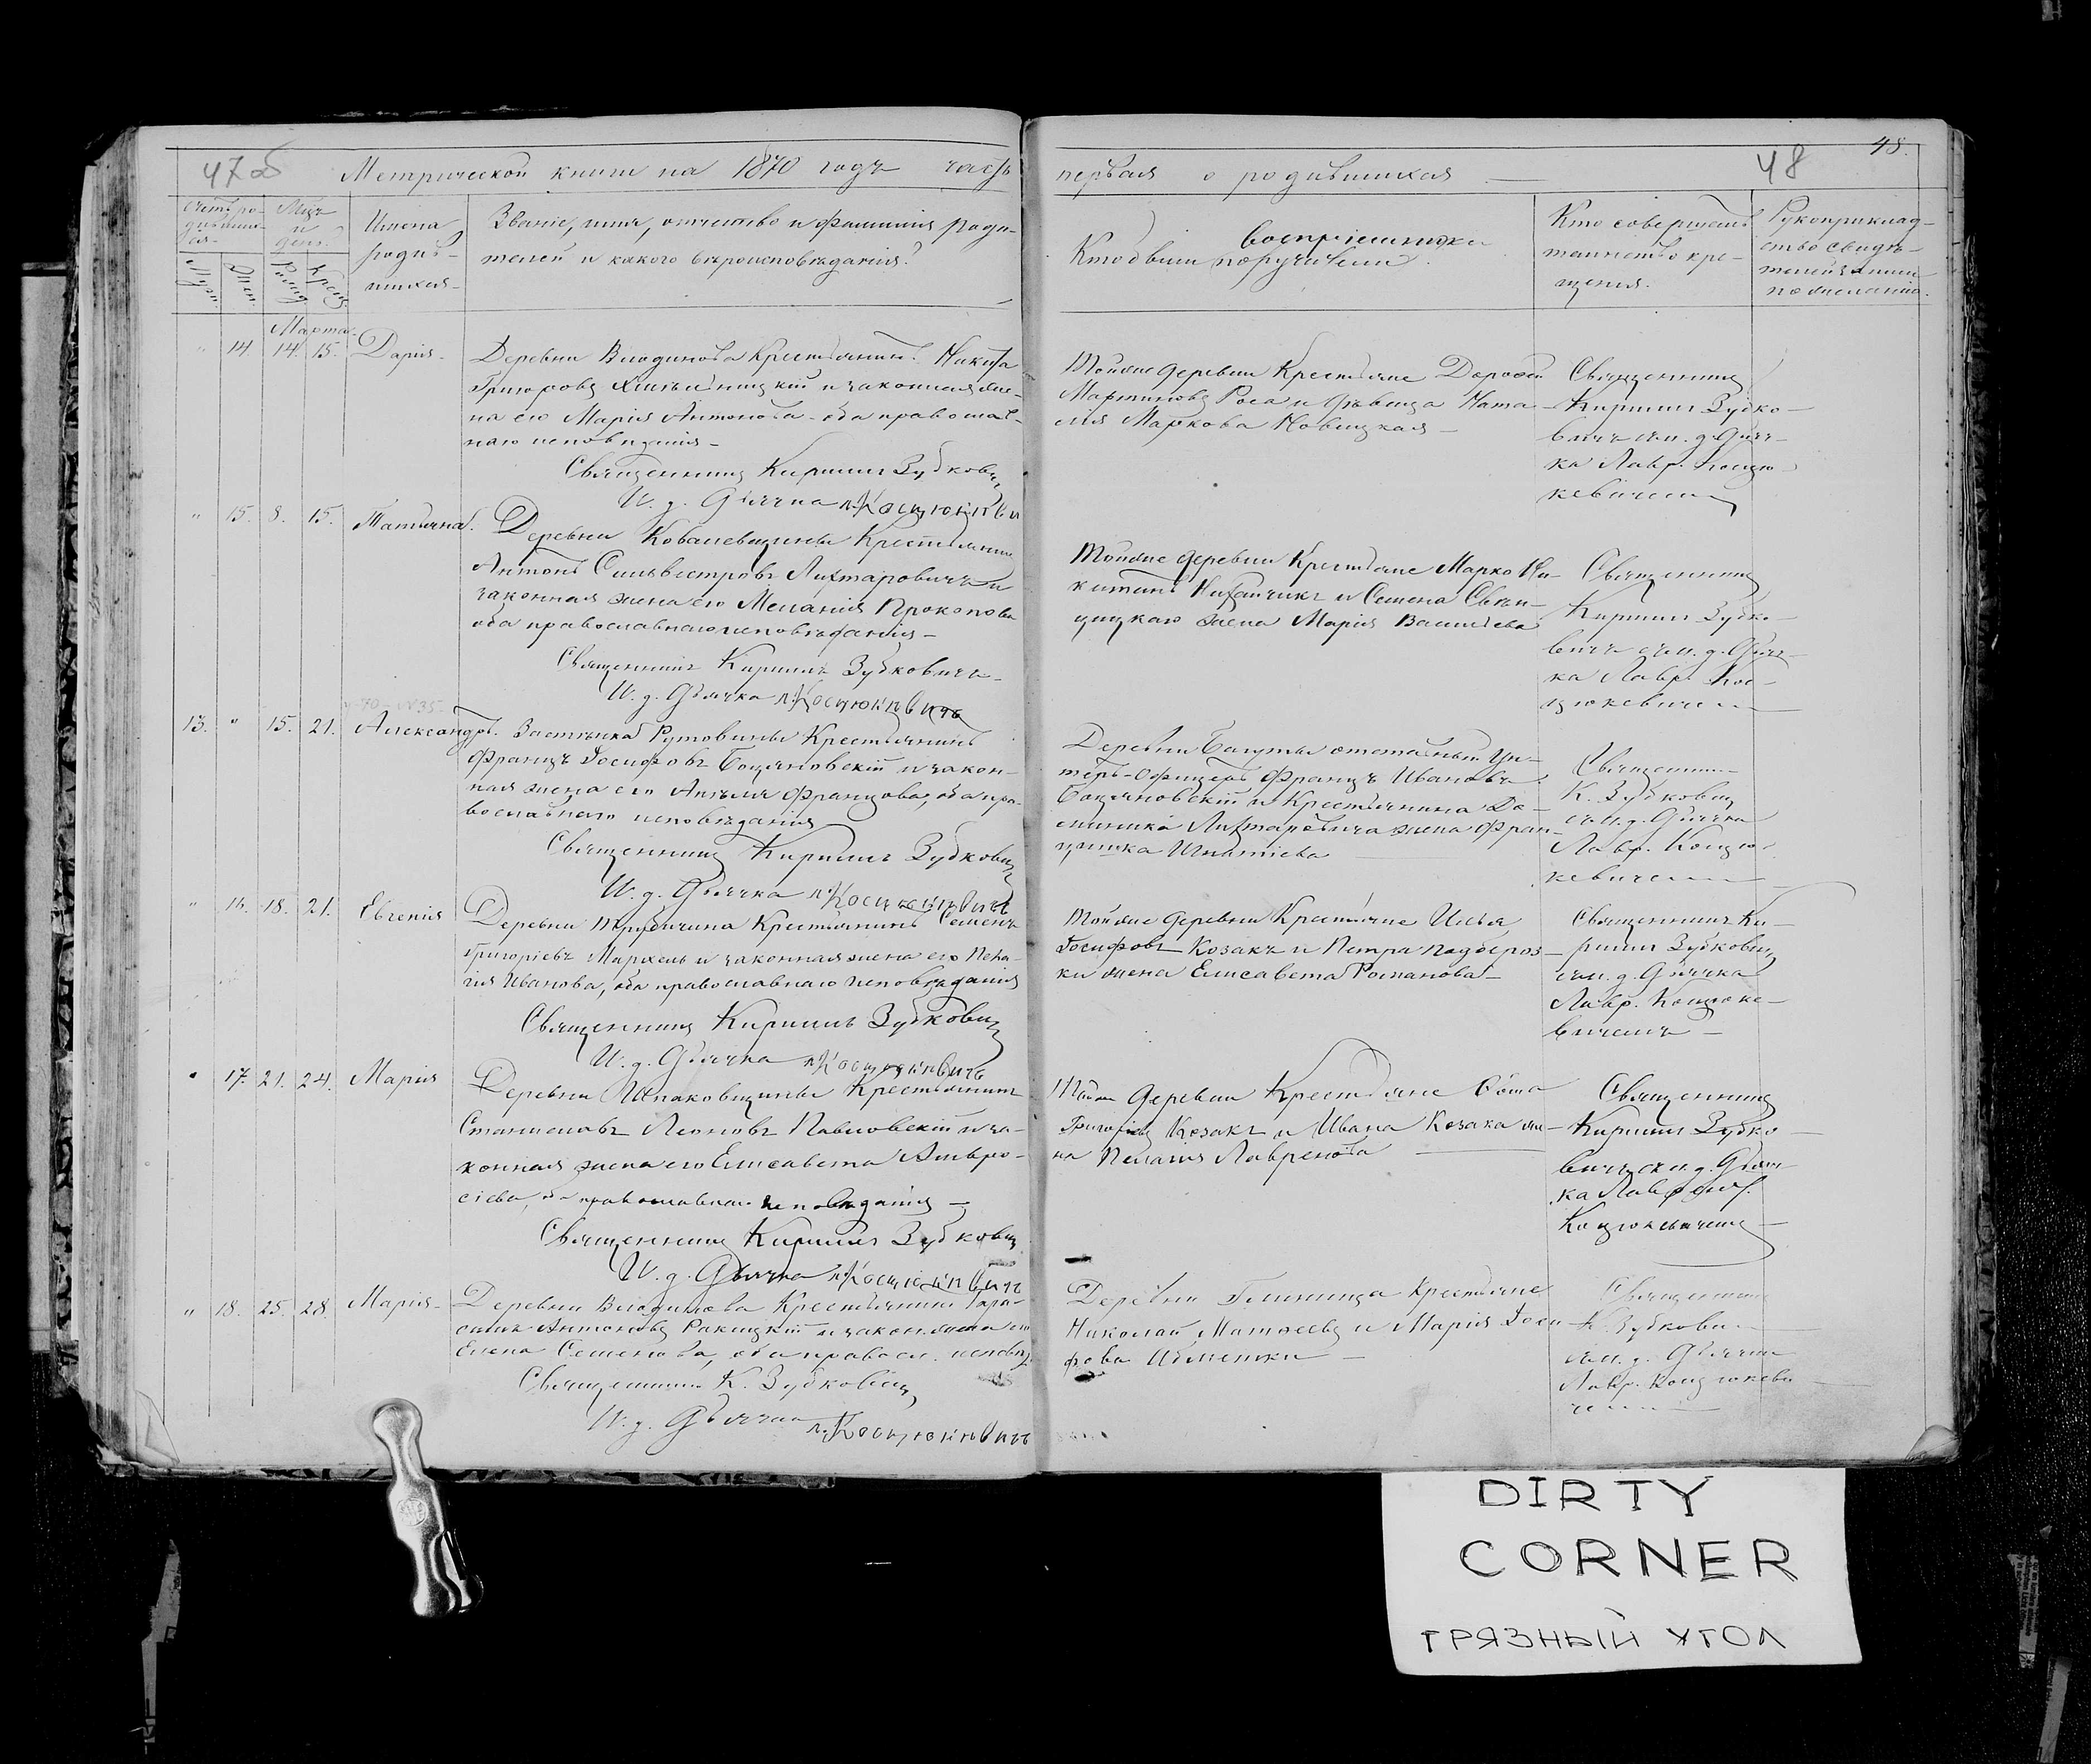 47об Метрической книги на 1870 годъ часть
первая о родившихся
48
48.
Счетъ ро-
дивших-
ся.
Муж.
Жен.
Мѣц.
и
день.
Рожд.
Крещ.
Имена
родив-
шихся.
Званіе, имя, отчество и фамилія роди-
телей и какого вѣроисповѣданія?
воспріемники
Кто были поручители.
Кто совершалъ
таинство кре-
щенія.
Рукоприклад-
ство свидѣ-
телей записи
по желанію.
Марта
" 14. 14. 15. Дарія.
Деревни Крестьянинъ Никита
Григоровъ и законная же-
на его Марія Антонова оба православ-
наго исповѣданія
Священникъ Кириллъ Зубковичъ
И. д. Дьячка Л. Косцюкевичъ
Тойже деревни Крестьяне Дорофей
Мартиновъ Роса и дѣвица Ната-
лія Маркова Новицкая
Священникъ
Кириллъ Зубко-
вичъ съ и. д. Дьяч-
ка Лавр. Косцю-
кевичемъ
" 15. 8. 15. Татьяна.
Деревни Ковалевщины Крестьянинъ
Антонъ Сильвестровъ Лихтаровичъ и
законная жена его Меланія Прокопова
оба православнаго исповѣданія
Священникъ Кириллъ Зубковичъ
И. д. Дьячка Л. Косцюкевичъ
Тойже деревни Крестьяне Марко Ни-
китинъ и Семена
жена Марія Васильева
Священникъ
Кириллъ Зубко-
вичъ съ и. д. Дьяч-
ка Лавр. Кос-
цюкевичемъ
13. " 15. 21. Александръ.
Застѣнка Рутовины Крестьянинъ
Францъ Іосифовъ Боцяновскій и закон-
ная жена его Анѣля Францова, оба пра-
вославнаго исповѣданія
Священникъ Кириллъ Зубковичъ
И. д. Дьячка Л. Косцюкевичъ
Деревни отставный Ун-
теръ-Офицеръ Францъ Ивановъ
Боцяновскій и Крестьянина До-
миника Лихтаровича жена Фран-
цишка Игнатіева
Священникъ
К. Зубковичъ
съ и. д. Дьячка
Лавр. Косцю-
кевичемъ
" 16. 18. 21. Евгенія
Деревни Крестьянинъ Семенъ
Григоріевъ и законная жена его Пела-
гія Иванова, оба православнаго исповѣданія
Священникъ Кириллъ Зубковичъ
И. д. Дьячка Л. Косцюкевичъ
Тойже деревни Крестьяне Илья
Іосифовъ Козакъ и Петра Подберез-
ки жена Елисавета Романова
Священникъ Ки-
риллъ Зубковичъ
съ и. д. Дьячка
Лавр. Косцюке-
вичемъ
" 17. 21. 24. Марія
Деревни Шпаковщины Крестьянинъ
Станиславъ Леоновъ Павловскій и за-
конная жена его Елисавета Амвро-
сіева, оба православнаго исповѣданія
Священникъ Кириллъ Зубковичъ
И. д. Дьячка Л. Косцюкевичъ
Тойже деревни Крестьяне Ѳома
Григоріевъ Козакъ и Ивана Козака же-
на Пелагія Лавренова
Священникъ
Кириллъ Зубко-
вичъ съ и. д. Дьяч-
ка
Косцюкевичемъ
" 18. 25. 28. Марія
Деревни Крестьянинъ Гара-
симъ Антоновъ Ракицкій и закон. жена его
Елена Семенова, оба правосл. исповѣд.
Священникъ К. Зубковичъ
И. д. Дьячка Л. Косцюкевичъ
Деревни Глинища Крестьяне
Николай Матѳеевъ и Марія Іоси-
фова
Священникъ
К. Зубкович
съ и. д. Дьячка
Лавр. Косцюкеви-
чемъ
DIRTY
CORNER
ГРЯЗНЫЙ УГОЛ